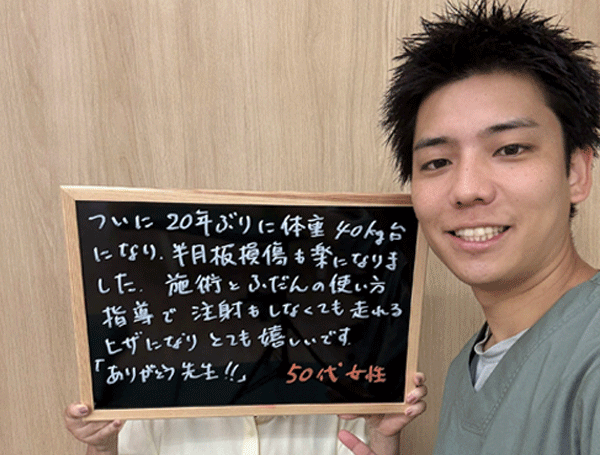 ついに 20年ぶりに 体重 40kg台
になり、半月板損傷も楽になりま
した。 施術と ふだんの使い方
指導で 注射もしなくても 走れる
ヒザになり とても嬉しいです。
「ありがとう 先生!!」 50代 女性